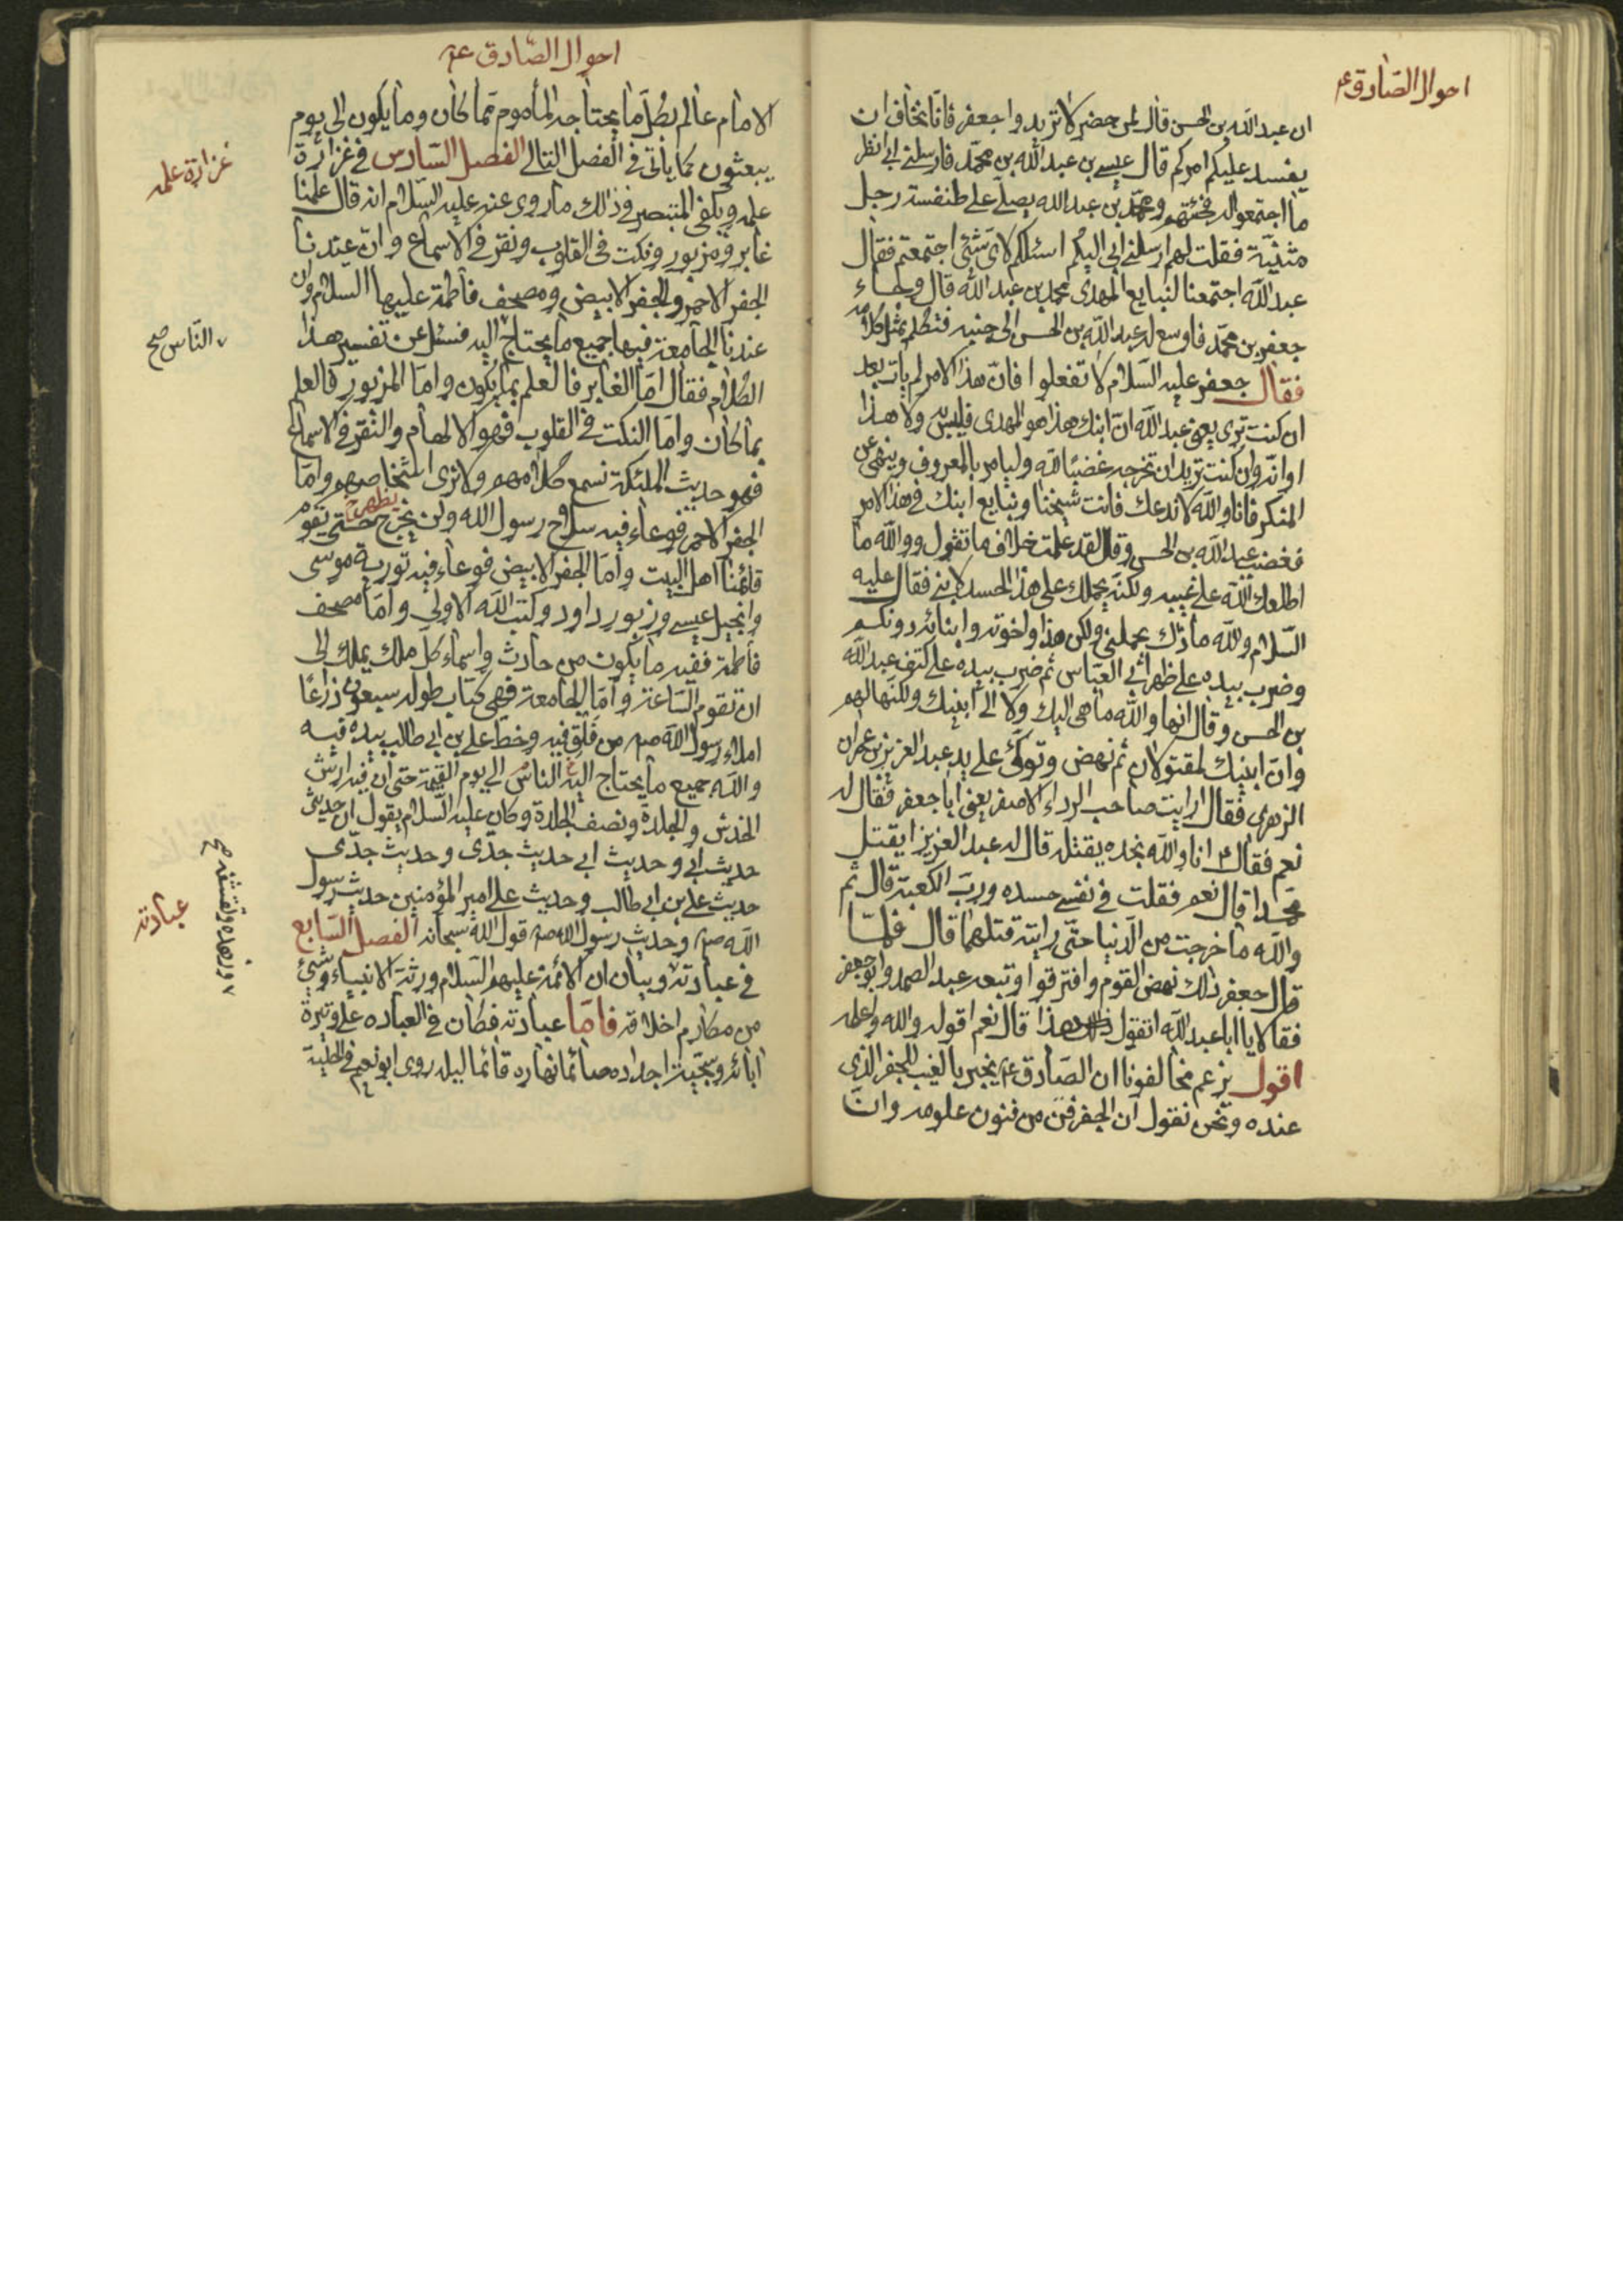 احوال الصّادق ع
ان عبد الله بن الحسن قال لمن حضر لا تريدوا جعفر فانّا نخاف ان
يفسد عليكم امركم قال عيسى بن عبد الله بن محمّد فارسلني ابي انظر
ما اجتمعوا له فجئتهم ومحمّد بن عبد الله يصلّي على طنفسة رجل
مثنيّة فقلت لهم ارسلني ابي اليكم اسئلكم لاىّ شئ اجتمعتم فقال
عبد الله اجتمعنا لنبايع المهدى محمد بن عبد الله قال وجاء
جعفر بن محمّد فاوسع له عبد الله بن الحسن الى جنبه فتكلّم بمثل كلامه
فقال جعفر عليه السّلام لا تفعلوا فانّ هذا الامر لم يأت بعد
ان كنت ترى يعنى عبد الله انّ ابنك هذا هو المهدى فليس به ولا هذا
اوانه وان كنت تريد ان تخرجه غضبًا لله وليامر بالمعروف وينهى عن
المنكر فانا والله لا ندعك فانت شيخنا ونبايع ابنك في هذا الامر
فغضب عبد الله بن الحسن وقال لقد علمت خلاف ما تقول ووالله ما
اطلعك الله على غيبه ولكنّه يحملك على هذا الحسد لابنى فقال عليه
السّلام والله ما ذاك يحملني ولكن هذا واخوته وابنائه دونكم
وضرب بيده على ظهر ابي العبّاس ثم ضرب بيده على كتف عبد الله
بن الحسن وقال انها والله ما هى اليك ولا الى ابنيك ولكنّها لهم
وانّ ابنيك لمقتولان ثم نهض وتوكّئ على يد عبد العزيز بن عمران
الزهرى فقال ارايت صاحب الرداء الاصفر يعنى ابا جعفر فقال له
نعم فقال انا والله نجده يقتله قال له عبد العزيز ايقتل
محمدا قال نعم فقلت في نفسي حسده وربّ الكعبة قال ثم
والله ما خرجت من الدنيا حتّى رايته قتلهما قال فلمّا
قال جعفر ذلك نهض القوم وافترقوا وتبعه عبد الصمد وابو جعفر
فقالا يا ابا عبد الله اتقول هذا قال نعم اقوله والله واعلمه
اقول يزعم مخالفونا ان الصّادق ع يخبر بالغيب للجفر الذى
عنده ونحن نقول ان الجفر فنّ من فنون علومه وانّ
احوال الصّادق ع
الامام عالم بكلّ ما يحتاجه المأموم ممّا كان وما يكون الى يوم
يبعثون كما يأتى في الفصل التالى الفصل السّادس في غزارة
علمه ويكفى المتبصر في ذلك ما روى عنه عليه السّلام انه قال علمنا
غابر ومزبور ونكت فى القلوب ونقر في الاسماع وانّ عندنا
الجفر الاحمر والجفر الابيض ومصحف فاطمة عليها السلام وان
عندنا الجامعة فيها جميع ما يحتاج اليه فسئل عن تفسير هذا
الكلام فقال امّا الغابر فالعلم بما يكون وامّا المزبور فالعلم
بما كان وامّا النكت في القلوب فهو الالهام والنقر في الاسماع
فهو حديث الملئكة نسمع كلامهم ولا نرى اشخاصهم وامّا
الجفر الاحمر فوعاء فيه سلاح رسول الله ولن يخرج حتى يقوم
يظهر خ
قائمنا اهل البيت وامّا الجفر الابيض فوعاء فيه تورية موسى
وانجيل عيسى وزبور داود وكتب الله الاولى وامّا مصحف
فاطمة ففيه ما يكون من حادث واسماء كلّ ملك يملك الى
ان تقوم السّاعة وامّا الجامعة فهى كتاب طوله سبعون ذراعًا
املاء رسول الله ص من فلق فيه وخط على بن ابى طالب بيده فيه
والله جميع ما يحتاج اليه الناس الى يوم القيمة حتى ان فيه ارش
الخدش والجلدة ونصف الجلدة وكان عليه السّلام يقول ان حديثى
حديث ابى وحديث ابى حديث جدّى وحديث جدّى
حديث على بن ابى طالب وحديث على امير المؤمنين حديث رسول
الله ص وحديث رسول الله ص قول الله سبحانه الفصل السّابع
في عبادته وبيان ان الائمة عليهم السّلام ورثة الانبياء وشئ
من مكارم اخلاقه فامّا عبادته فكان في العباده على وتيرة
ابائه وسجيّة اجداده صائما نهاره قائما ليله روى ابو نعيم في الحلية
غزارة علمه
النّاس صح
وزهده وتقشفه صح
عبادته